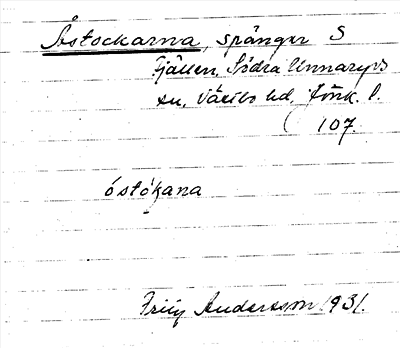 Åstockarna, spänger S
Fjällen, Södra Unnaryds
sn, Västbo hd, Jönk. l.
( 107.
óstòkana
Frity Andersson 1931.